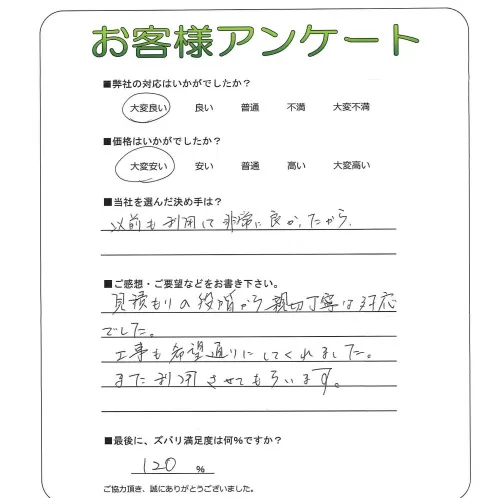 お客様アンケート
■弊社の対応はいかがでしたか？
大変良い 良い 普通 不満 大変不満
■価格はいかがでしたか？
大変安い 安い 普通 高い 大変高い
■当社を選んだ決め手は？
以前も利用して非常に良かったから、
■ご感想・ご要望などをお書き下さい。
見積もりの段階から親切丁寧な対応
でした。
工事も希望通りにしてくれました。
また利用させてもらいます。
■最後に、ズバリ満足度は何%ですか？
120 %
ご協力頂き、誠にありがとうございました。